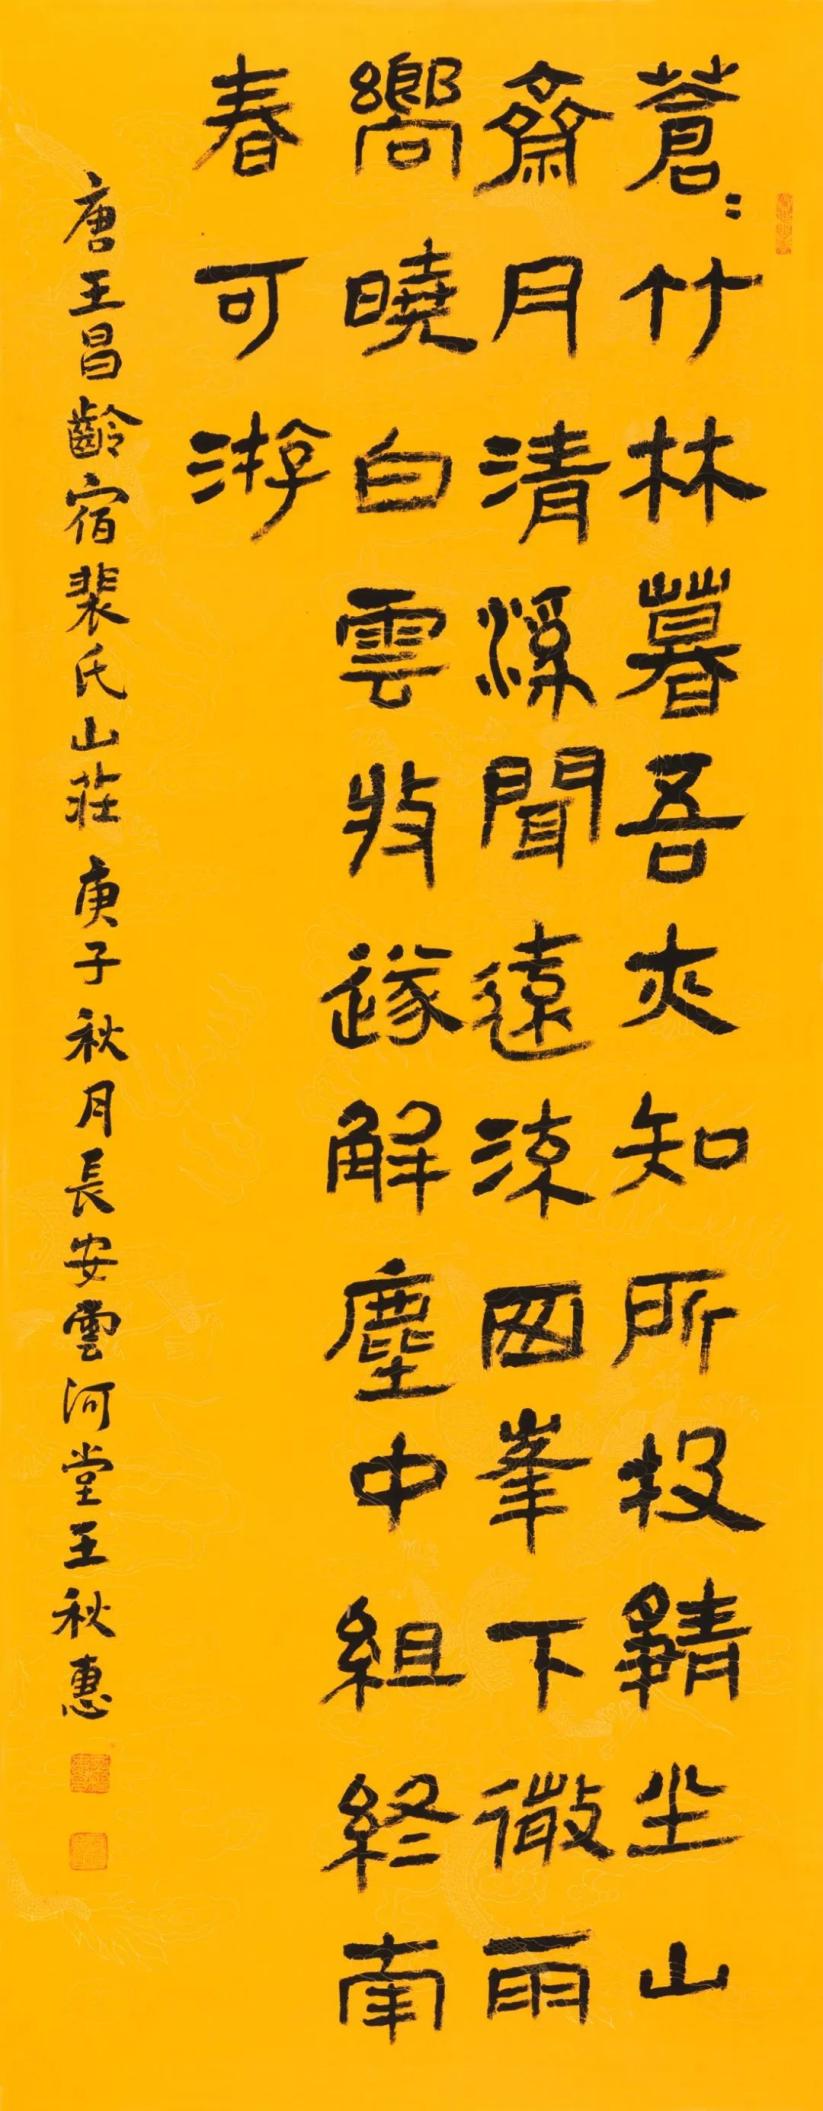 蒼〻竹林暮吾亦知所投靜坐山
齋月清溪聞遠流西峯下微雨
嚮曉白雲收遂解塵中組終南
春可游
唐王昌齡宿裴氏山莊 庚子秋月長安雲河堂王秋惠